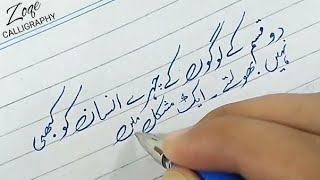 Zoqe
CALLIGRAPHY
دو قسم کے لوگوں کے چہرے انسان کو کبھی
نہیں بھولتے۔ ایک مشکل میں